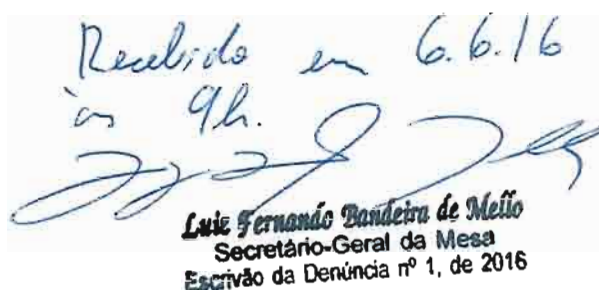 Recebido em 6.6.16
às 9h.
Luiz Fernando Bandeira de Mello
Secretário-Geral da Mesa
Escrivão da Denúncia nº 1, de 2016